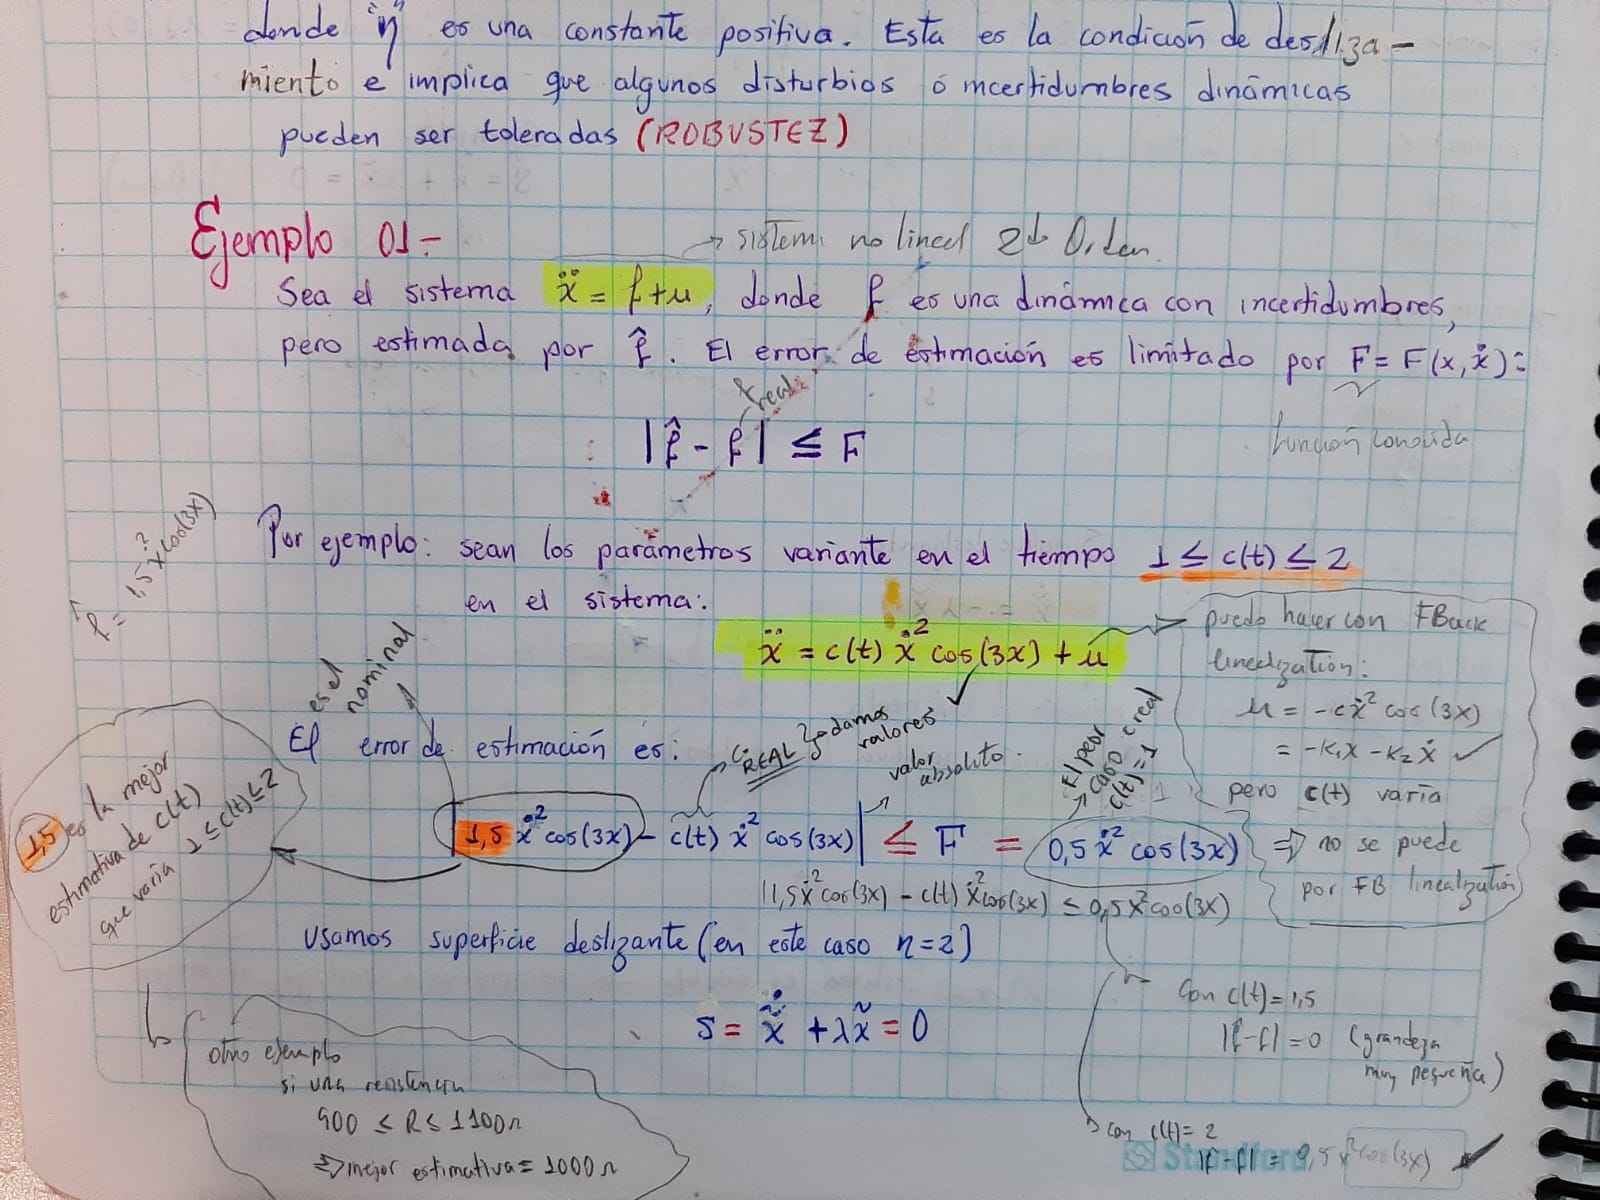 donde "η" es una constante positiva. Esta es la condición de desliza-
miento e implica que algunos disturbios ó incertidumbres dinámicas
pueden ser toleradas (ROBUSTEZ)
Ejemplo 01-
→ sistema no lineal 2do Orden.
Sea el sistema ẍ = f+u, donde f es una dinámica con incertidumbres,
pero estimada por f̂. El error de estimación es limitado por F = F(x,ẋ):
f real
función conocida
|f̂ - f| ≤ F
f̂ = 1,5 ẋ² cos(3x)
Por ejemplo: sean los parámetros variante en el tiempo 1 ≤ c(t) ≤ 2
en el sistema:
ẍ = c(t) ẋ² cos(3x) + u
puedo hacer con FBack
linealization:
u = -cẋ² cos(3x)
= -k₁x - k₂ẋ ✓
pero c(t) varía
⇒ no se puede
por FB linealization
es el
nominal
El error de estimación es:
C REAL
damos
valores
valor
absoluto.
El peor
caso c real
c(t)=1
1
|1,5 ẋ² cos(3x) - c(t) ẋ² cos(3x)| ≤ F = 0,5 ẋ² cos(3x)
|1,5ẋ² cos(3x) - c(t) ẋ² cos(3x) ≤ 0,5 ẋ² cos(3x)
1,5 es la mejor
estimativa de c(t)
que varía 1 ≤ c(t) ≤ 2
Usamos superficie deslizante (en este caso n=2)
s = x̃̇ + λx̃ = 0
Con c(t)=1,5
|f̂-f| = 0 (grandeza
muy pequeña)
otro ejemplo
si una resistencia
900 ≤ R ≤ 1100Ω
⇒ mejor estimativa = 1000Ω
con c(t)= 2
|f̂-f| = 0,5ẋ² cos(3x) ✓
Standford